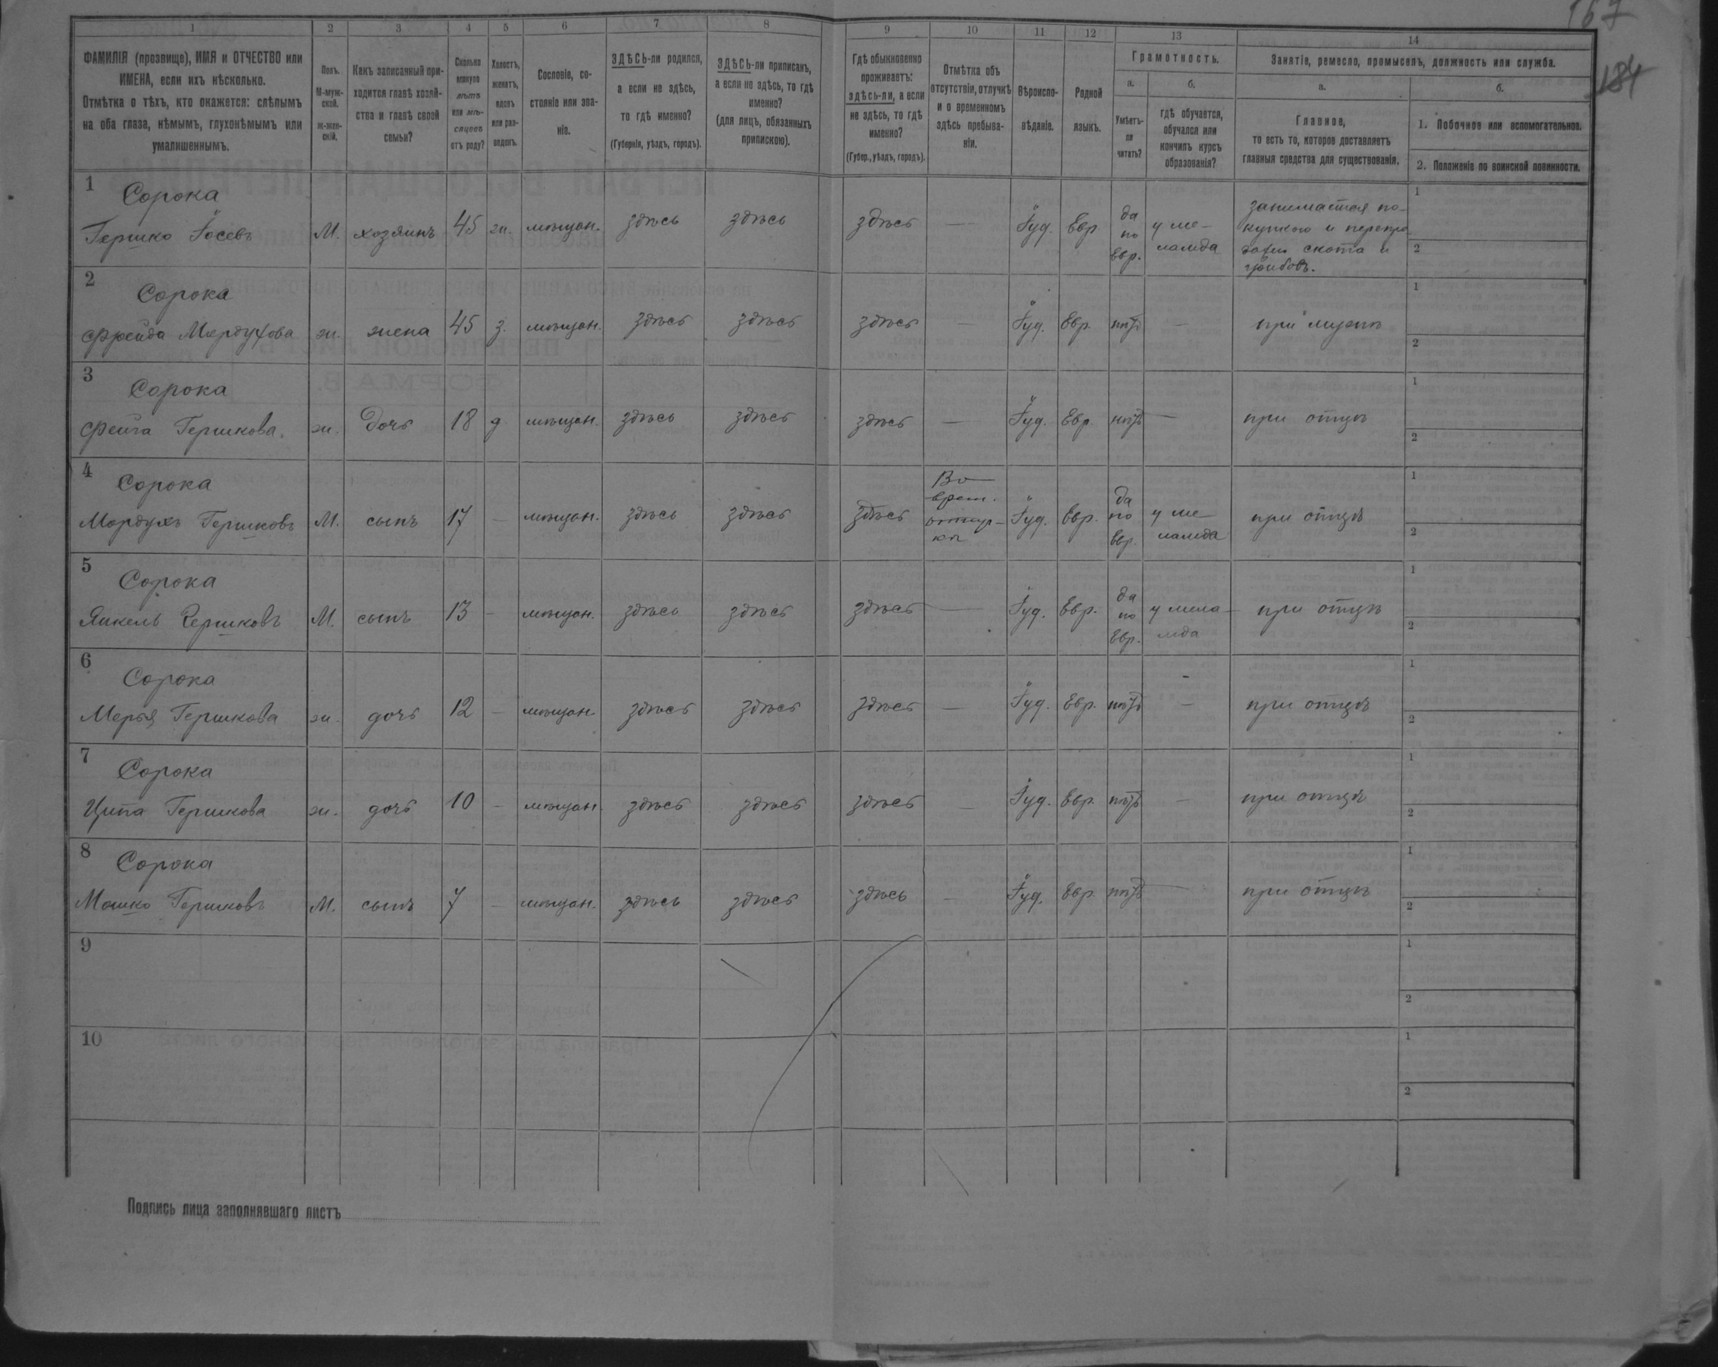 167
184
1 2 3 4 5 6 7 8 9 10 11 12 13 14
ФАМИЛІЯ (прозвище), ИМЯ и ОТЧЕСТВО или
ИМЕНА, если ихъ нѣсколько.
Отмѣтка о тѣхъ, кто окажется: слѣпымъ
на оба глаза, нѣмымъ, глухонѣмымъ или
умалишеннымъ.
Полъ.
М-муж-
ской.
ж-жен-
скій.
Какъ записанный при-
ходится главѣ хозяй-
ства и главѣ своей
семьи?
Сколько
минуло
лѣтъ
или мѣ-
сяцевъ
отъ роду?
Холостъ,
женатъ,
вдовъ
или раз-
веденъ.
Сословіе, со-
стояніе или зва-
ніе.
ЗДѢСЬ-ли родился,
а если не здѣсь,
то гдѣ именно?
(Губернія, уѣздъ, городъ).
ЗДѢСЬ-ли приписанъ,
а если не здѣсь, то гдѣ
именно?
(для лицъ, обязанныхъ
припискою).
Гдѣ обыкновенно
проживаетъ:
здѣсь-ли, а если
не здѣсь, то гдѣ
именно?
(Губер., уѣздъ, городъ).
Отмѣтка объ
отсутствіи, отлучкѣ
и о временномъ
здѣсь пребыва-
ніи.
Вѣроиспо-
вѣданіе.
Родной
языкъ.
Грамотность.
а.
Умѣетъ-
ли
читать?
б.
гдѣ обучается,
обучался или
кончилъ курсъ
образованія?
Занятіе, ремесло, промыселъ, должность или служба.
а.
Главное,
то есть то, которое доставляетъ
главныя средства для существованія.
б.
1. Побочное или вспомогательное.
2. Положеніе по воинской повинности.
1 Сорока
Гершко Іосевъ М. хозяинъ 45 ж. мѣщан. здѣсь здѣсь здѣсь — Іуд. Евр. да по евр. у ме- ламда занимается по-
купкою и перепро
дажи скота и
грибовъ.
1
2
2 Сорока
Фрейда Мордухова ж. жена 45 з. мѣщан. здѣсь здѣсь здѣсь — Іуд. Евр. нѣтъ — при мужѣ
1
2
3 Сорока
Фейга Гершкова. ж. дочь 18 д мѣщан. здѣсь здѣсь здѣсь — Іуд. Евр нѣтъ — при отцѣ
1
2
4 Сорока
Мордухъ Гершковъ М. сынъ 17 — мѣщан. здѣсь здѣсь здѣсь Во врем. отлуч- кѣ Іуд. Евр. да по евр. у ме- ламда при отцѣ
1
2
5 Сорока
Янкель Гершковъ М. сынъ 13 — мѣщан. здѣсь здѣсь здѣсь — Іуд. Евр. да по евр. у мела- мда при отцѣ
1
2
6 Сорока
Мерья Гершкова ж. дочь 12 — мѣщан. здѣсь здѣсь здѣсь — Іуд. Евр. нѣтъ — при отцѣ
1
2
7 Сорока
Ципа Гершкова ж. дочь 10 — мѣщан. здѣсь здѣсь здѣсь — Іуд. Евр. нѣтъ — при отцѣ
1
2
8 Сорока
Мошко Гершковъ М. сынъ 7 — мѣщан. здѣсь здѣсь здѣсь — Іуд. Евр. нѣтъ — при отцѣ
1
2
9
1
2
10
1
2
Подпись лица заполнявшаго листъ